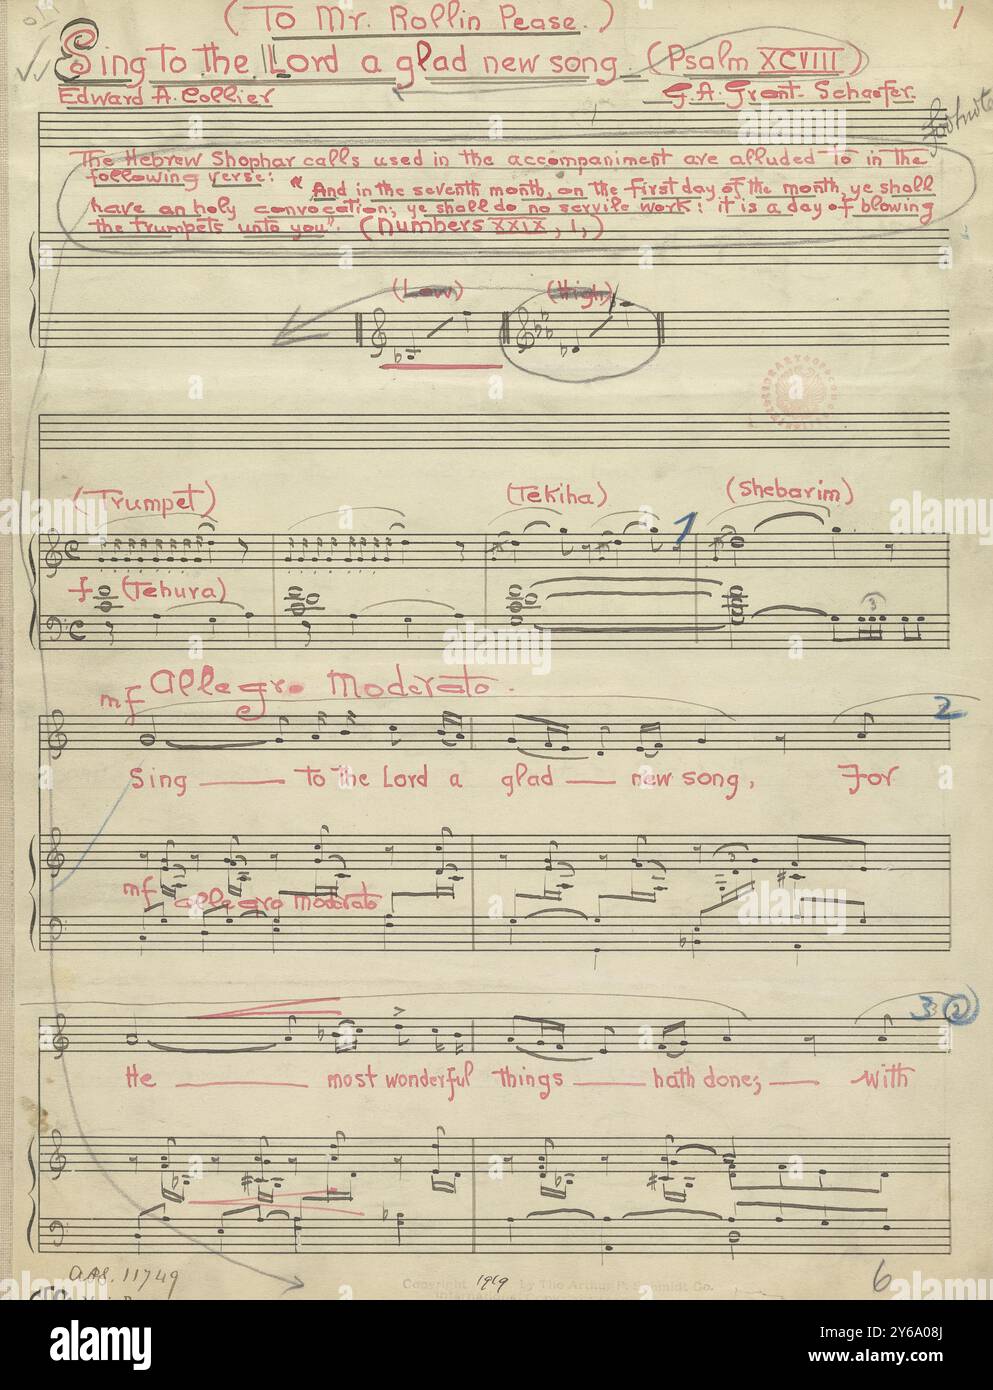 (To Mr. Rollin Pease.) 1
Sing to the Lord a glad new song (Psalm XCVIII)
Edward A. Collier G. A. Grant-Schaefer.
footnote
The Hebrew Shophar calls used in the accompaniment are alluded to in the
following verse: "And in the seventh month, on the first day of the month, ye shall
have an holy convocation; ye shall do no servile work: it is a day of blowing
the trumpets unto you". (Numbers XXIX, 1,)
(Low) (High)
(Trumpet) (Tekiha) 1 (Shebarim)
f (Tehura) 3
mf Allegro Moderato. 2
Sing to the Lord a glad new song, For
mf Allegro moderato 3
3 2
He most wonderful things hath done; with
11749 Copyright 1919 by The Arthur P. Schmidt Co. 6
alamy
Image ID: 2Y6A08J
www.alamy.com